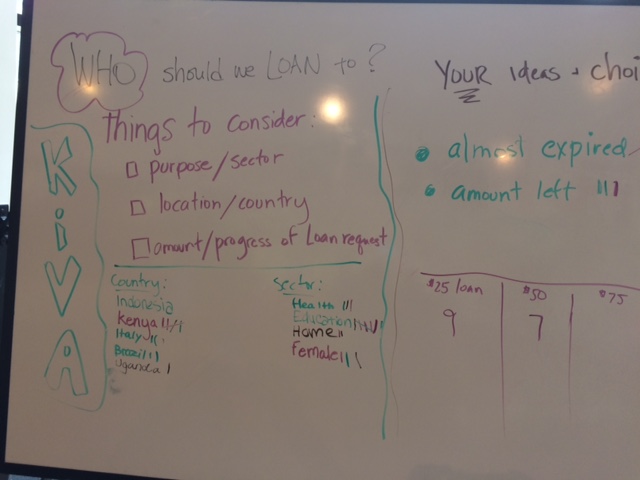 WHO should we LOAN to?
KiVA
Things to consider:
purpose/sector
location/country
amount/progress of Loan request
Country:
Indonesia
Kenya
Italy
Brazil
Uganda
Sector:
Health
Education
Home
Female
YOUR ideas + choi
almost expired
amount left
$25 loan
9
$50
7
$75